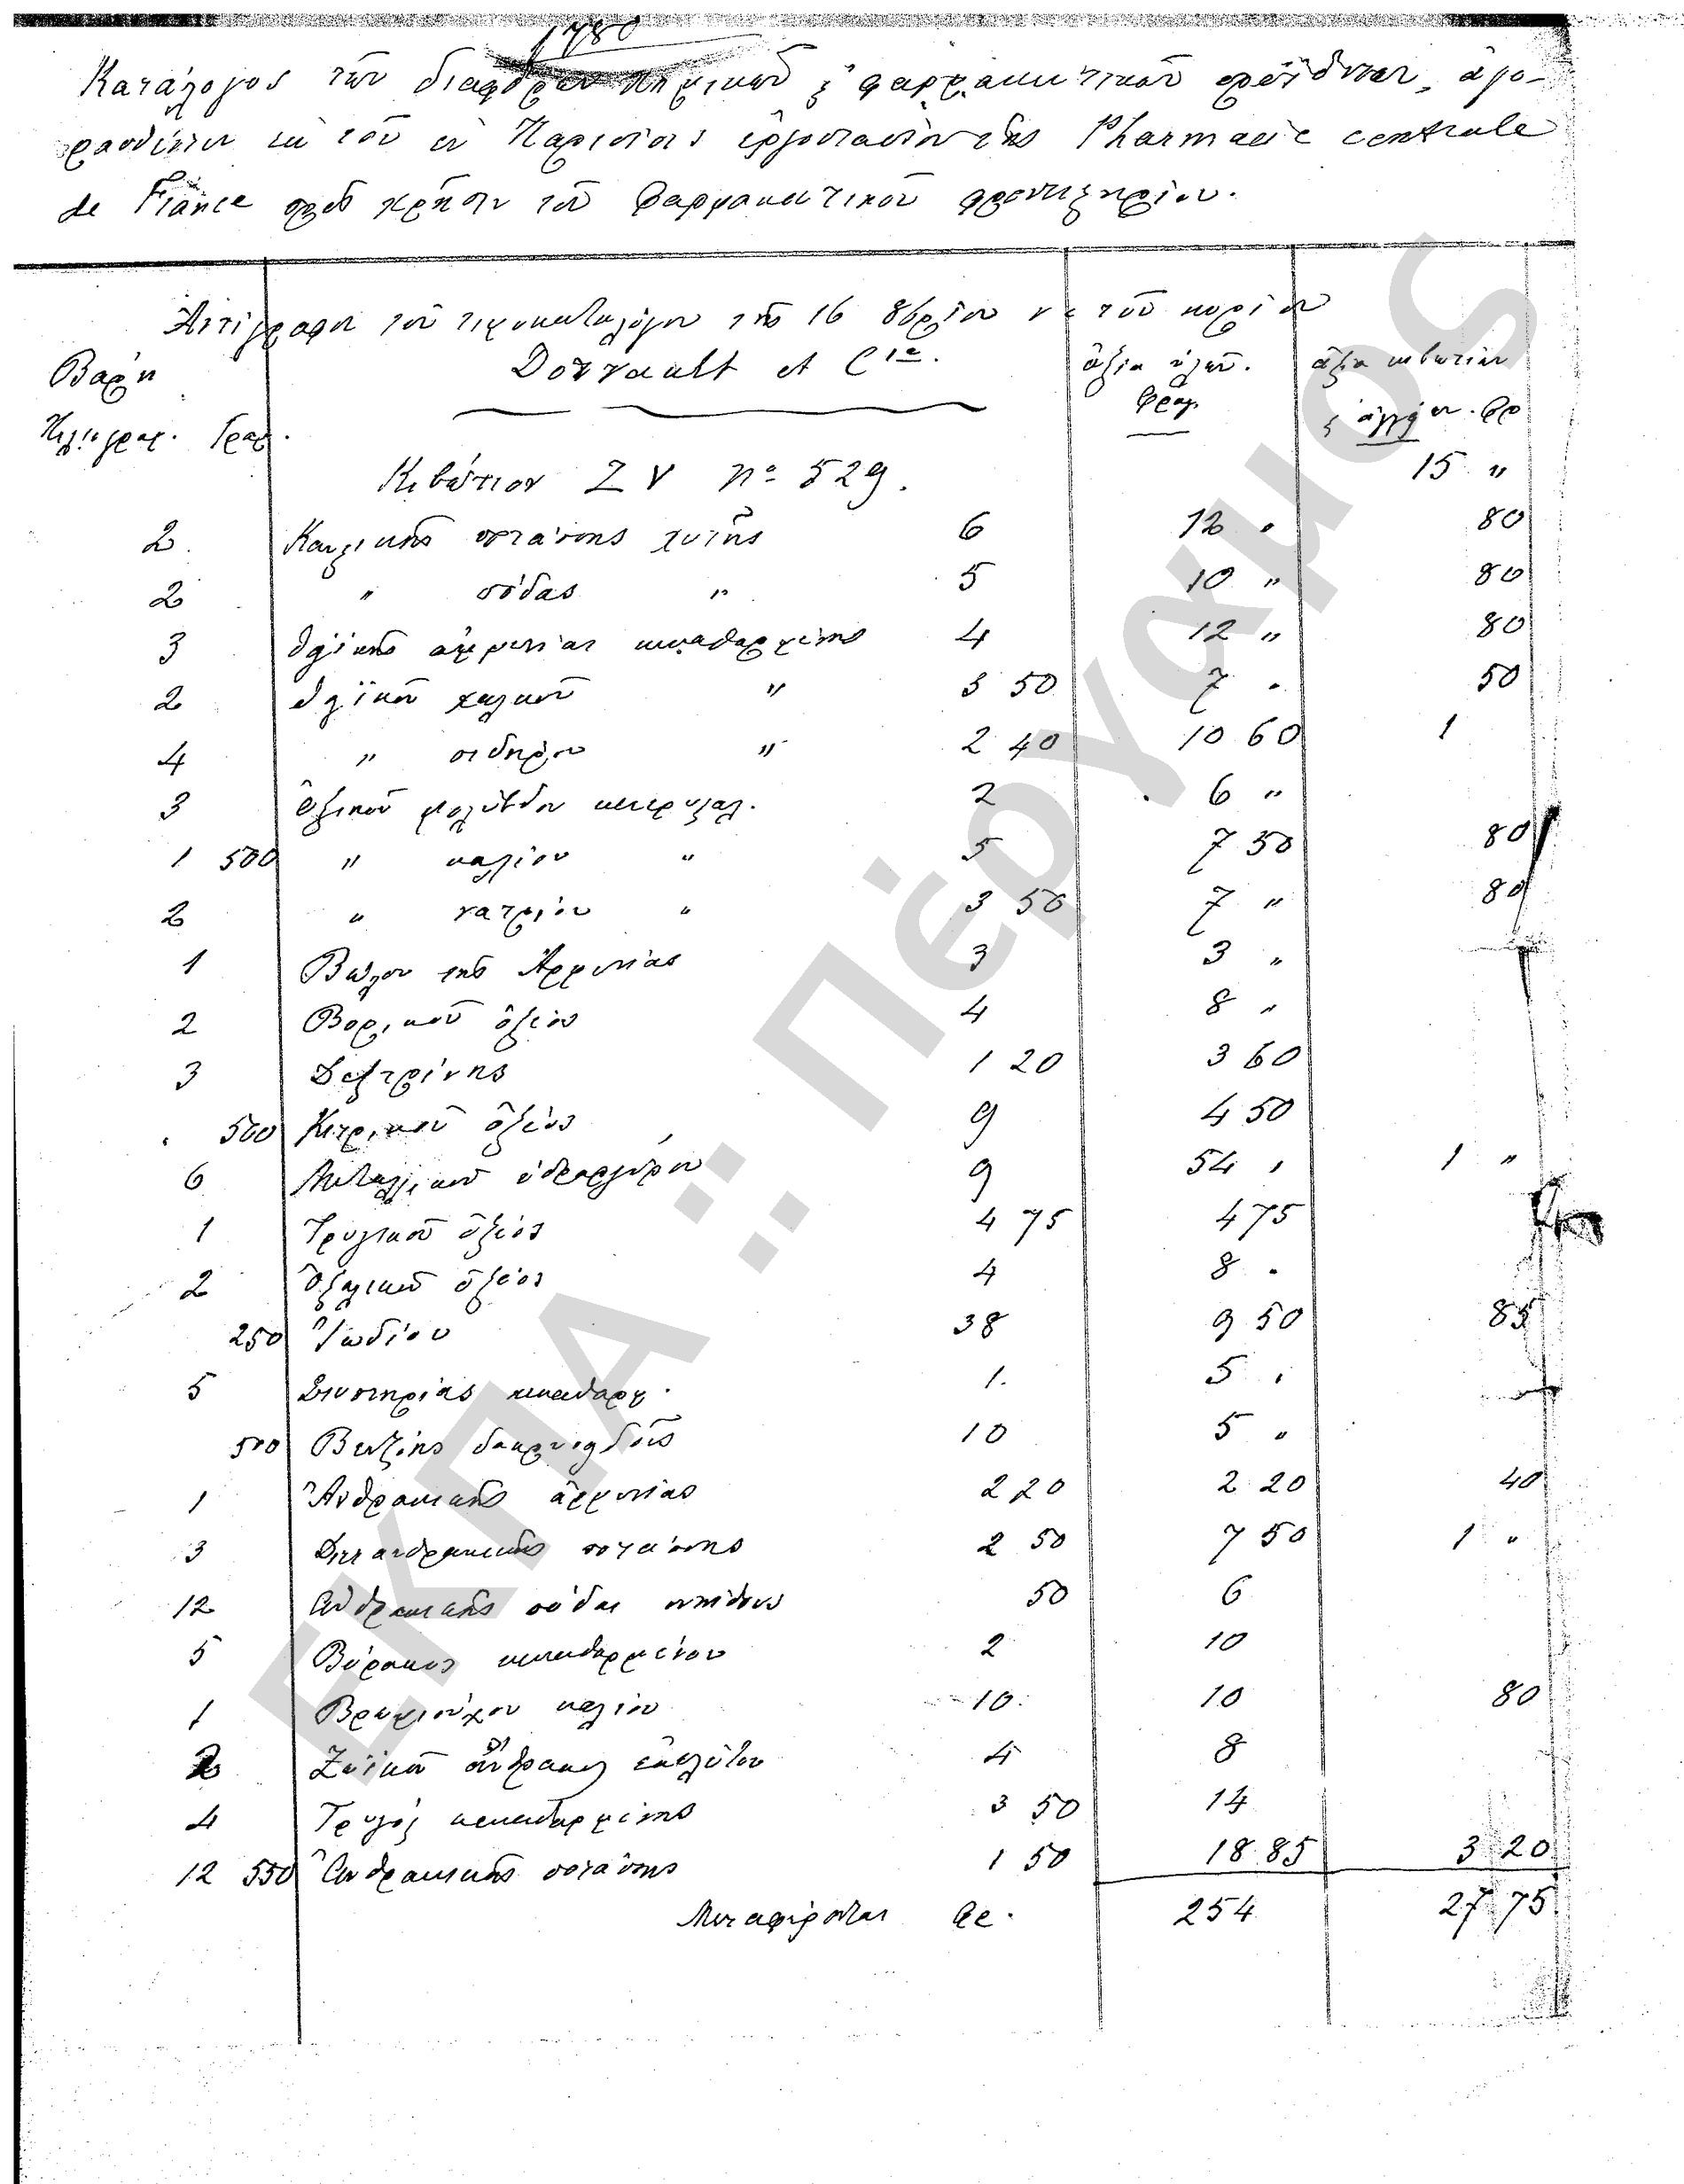 1780
Κατάλογος τῶν διαφόρων χημικῶν ϗ φαρμακευτικῶν προϊόντων, ἀγο-
ρασθέντων ἐκ τοῦ ἐν Παρισίοις ἐργοστασίου τῆς Pharmacie centrale
de France πρὸς χρῆσιν τοῦ Φαρμακευτικοῦ φροντιστηρίου.
Ἀντίγραφον τοῦ τιμοκαταλόγου τῆς 16 8βρίου τῶν κυρίων
Βάρη Dorvault et Cie. ἀξία ὑλῶν. ἀξία κιβωτίων
Χιλιόγραμ. Γραμ. Φραγ. ϗ ἀγγείων. Φρ
Κιβώτιον Z V No 529. 15 "
2. Καυστικῆς ποτάσσης χυτῆς 6 12 " 80
2 " σόδας " 5 10 " 80
3 θειϊκῆς ἀμμωνίας κεκαθαρμένης 4 12 " 80
2 θειϊκοῦ χαλκοῦ " 3 50 7 " 50
4 " σιδήρου " 2 40 10 60 1
3 Ὀξικοῦ μολύβδου κεκρυσταλ. 2 6 "
1 500 " καλίου " 5 7 50 80
2 " νατρίου " 3 50 7 " 80
1 Βώλου τῆς Ἀρμενίας 3 3 "
2 Βορικοῦ ὀξέος 4 8 "
3 Δεξτρίνης 1 20 3 60
" 500 Κιτρικοῦ ὀξέος 9 4 50
6 Μεταλλικοῦ ὑδραργύρου 9 54 " 1 "
1 Τρυγικοῦ ὀξέος 4 75 4 75
2 Ὀξαλικοῦ ὀξέος 4 8 "
250 Ἰωδίου 38 9 50 85
5 Στυπτηρίας κεκαθαρμ. 1. 5 "
500 Βενζόης δακρυοειδοῦς 10 5 "
1 Ἀνθρακικῆς ἀμμωνίας 2 20 2 20 40
3 Δισανθρακικῆς ποτάσσης 2 50 7 50 1 "
12 Ἀνθρακικῆς σόδας συνήθους 50 6
5 Βόρακος κεκαθαρμένου 2 10
1 Βρωμιούχου καλίου 10. 10 80
2 Ζωϊκοῦ ἄνθρακος ἐκπλύτου 4 8
4 Τρυγὸς κεκαθαρμένης 3 50 14
12 550 Ἀνθρακικῆς ποτάσσης 1 50 18 85 3 20
Μεταφέρονται Φρ. 254 27 75
ΕΚΠΑ :: Πέργαμος